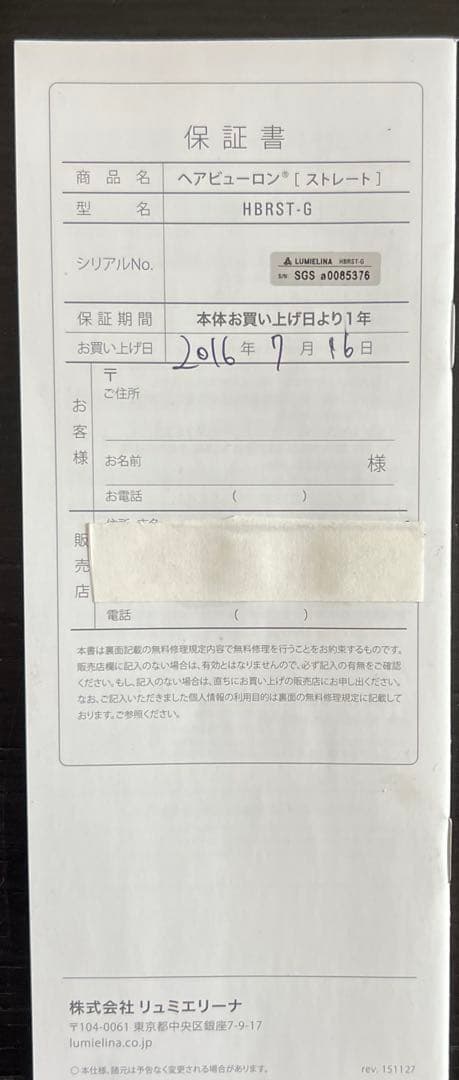 保証書
商品名 ヘアビューロン®[ストレート]
型名 HBRST-G
シリアルNo.
LUMIELINA HBRST-G
S/N SGS a0085376
保証期間 本体お買い上げ日より1年
お買い上げ日 2016年 7月 16日
お客様
〒
ご住所
お名前 様
お電話 ( )
販売店
電話 ( )
本書は裏面記載の無料修理規定内容で無料修理を行うことをお約束するものです。
販売店欄に記入のない場合は、有効とはなりませんので、必ず記入の有無をご確認
ください。もし、記入のない場合は、直ちにお買い上げの販売店にお申し出ください。
なお、ご記入いただきました個人情報の利用目的は裏面の無料修理規定に記載して
おります。ご参照ください。
株式会社 リュミエリーナ
〒104-0061 東京都中央区銀座7-9-17
lumielina.co.jp
○ 本仕様、諸元は予告なく変更される場合があります。 rev. 151127